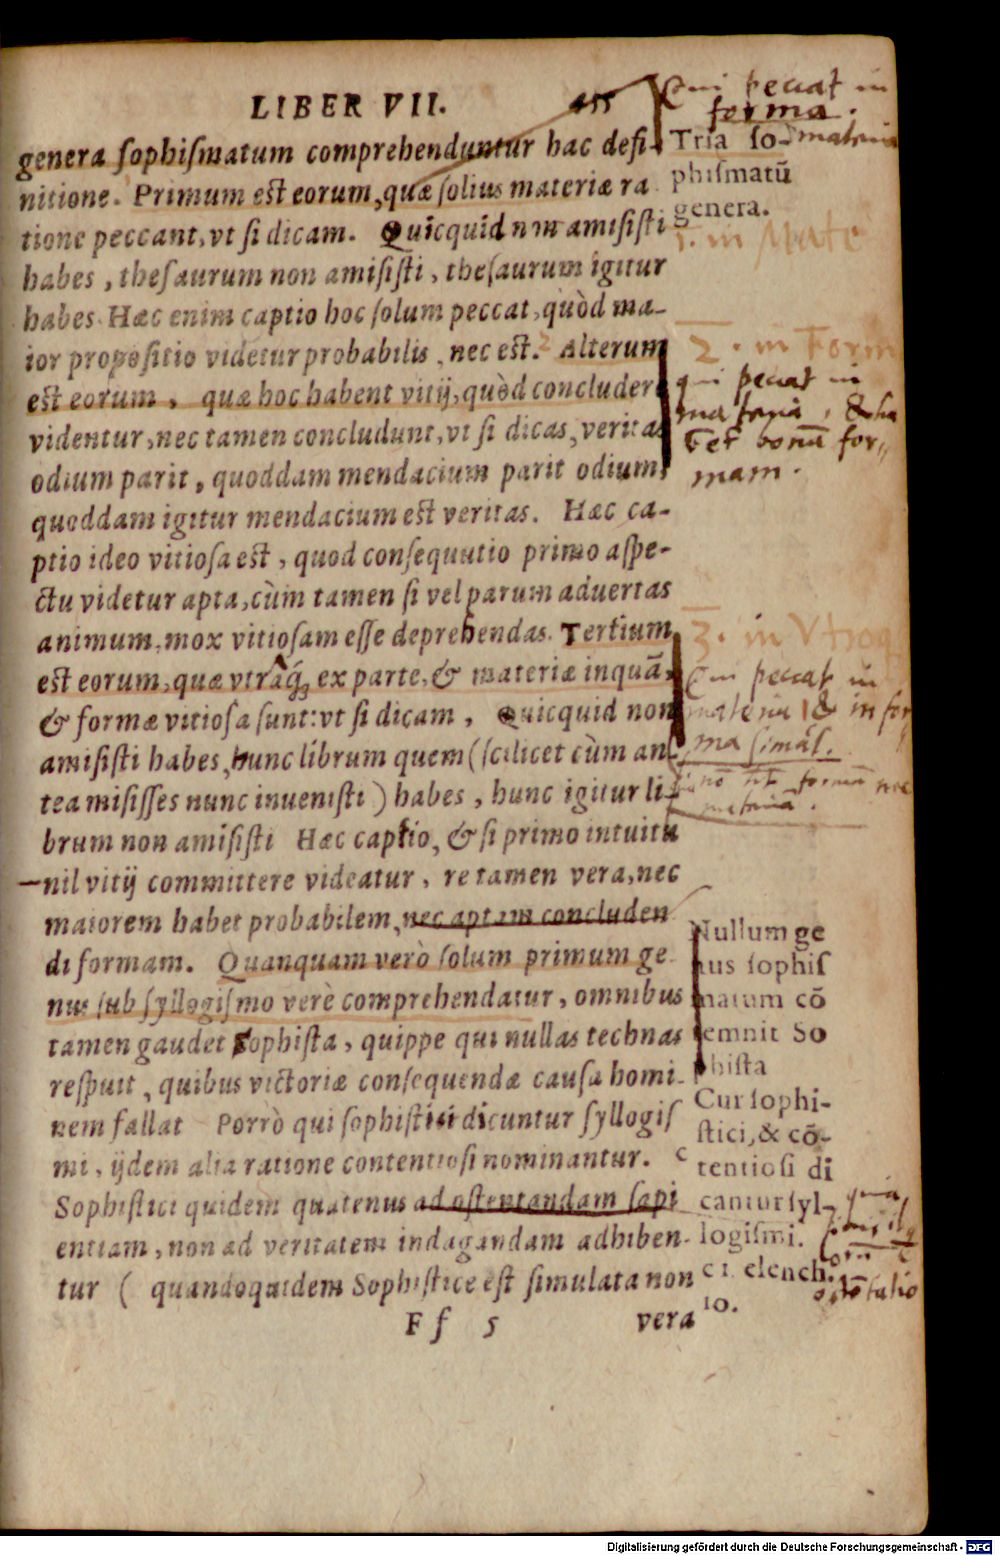 LIBER VII. 455
genera ſophiſmatum comprehenduntur hac defi-
nitione. Primum est eorum, quæ ſolius materiæ ra
tione peccant, vt ſi dicam. Quicquid non amiſiſti
habes, theſaurum non amiſiſti, theſaurum igitur
habes. Hæc enim captio hoc ſolum peccat, quòd ma-
ior propoſitio videtur probabilis, nec est. 2 Alterum
est eorum, quæ hoc habent vitij, quòd concludere
videntur, nec tamen concludunt, vt ſi dicas, veritas
odium parit, quoddam mendacium parit odium,
quoddam igitur mendacium est veritas. Hæc ca-
ptio ideo vitioſa est, quod conſequutio primo aſpe-
ctu videtur apta, cùm tamen ſi vel parum aduertas
animum, mox vitioſam eſſe deprehendas. Tertium
est eorum, quæ vtraq; ex parte, & materiæ inquã,
& formæ vitioſa ſunt: vt ſi dicam, Quicquid non
amiſiſti habes, hunc librum quem (ſcilicet cùm an-
tea miſiſſes nunc inueniſti) habes, hunc igitur li-
brum non amiſiſti Hæc captio, & ſi primo intuitu
nil vitij committere videatur, re tamen vera, nec
maiorem habet probabilem, nec aptam concluden
di formam. Quanquam verò ſolum primum ge-
nus ſub ſyllogiſmo verè comprehendatur, omnibus
tamen gaudet Sophiſta, quippe qui nullas technas
reſpuit, quibus victoriæ conſequendæ cauſa homi-
nem fallat Porrò qui ſophiſtici dicuntur ſyllogiſ
mi, ijdem alia ratione contentioſi nominantur. c
Sophiſtici quidem quatenus ad oſtentandam ſapi
entiam, non ad veritatem indagandam adhiben-
tur ( quandoquidem Sophiſtice est ſimulata non
F f 5 vera
Qui peccat in
forma.
materia
Tria ſo-
phiſmatũ
genera.
1. in Mate
2. in Form
qui peccat in
materia, &
bonã for-
mam.
3. in Vtroq
Qui peccat in
materia & in for
ma simul.
formã nec
materiã.
Nullum ge
nus ſophiſ
matum cõ
temnit So
phiſta
Cur ſophi-
ſtici, & cõ-
tentioſi di
cantur ſyl-
logiſmi.
quia
c 1. elench.
10.